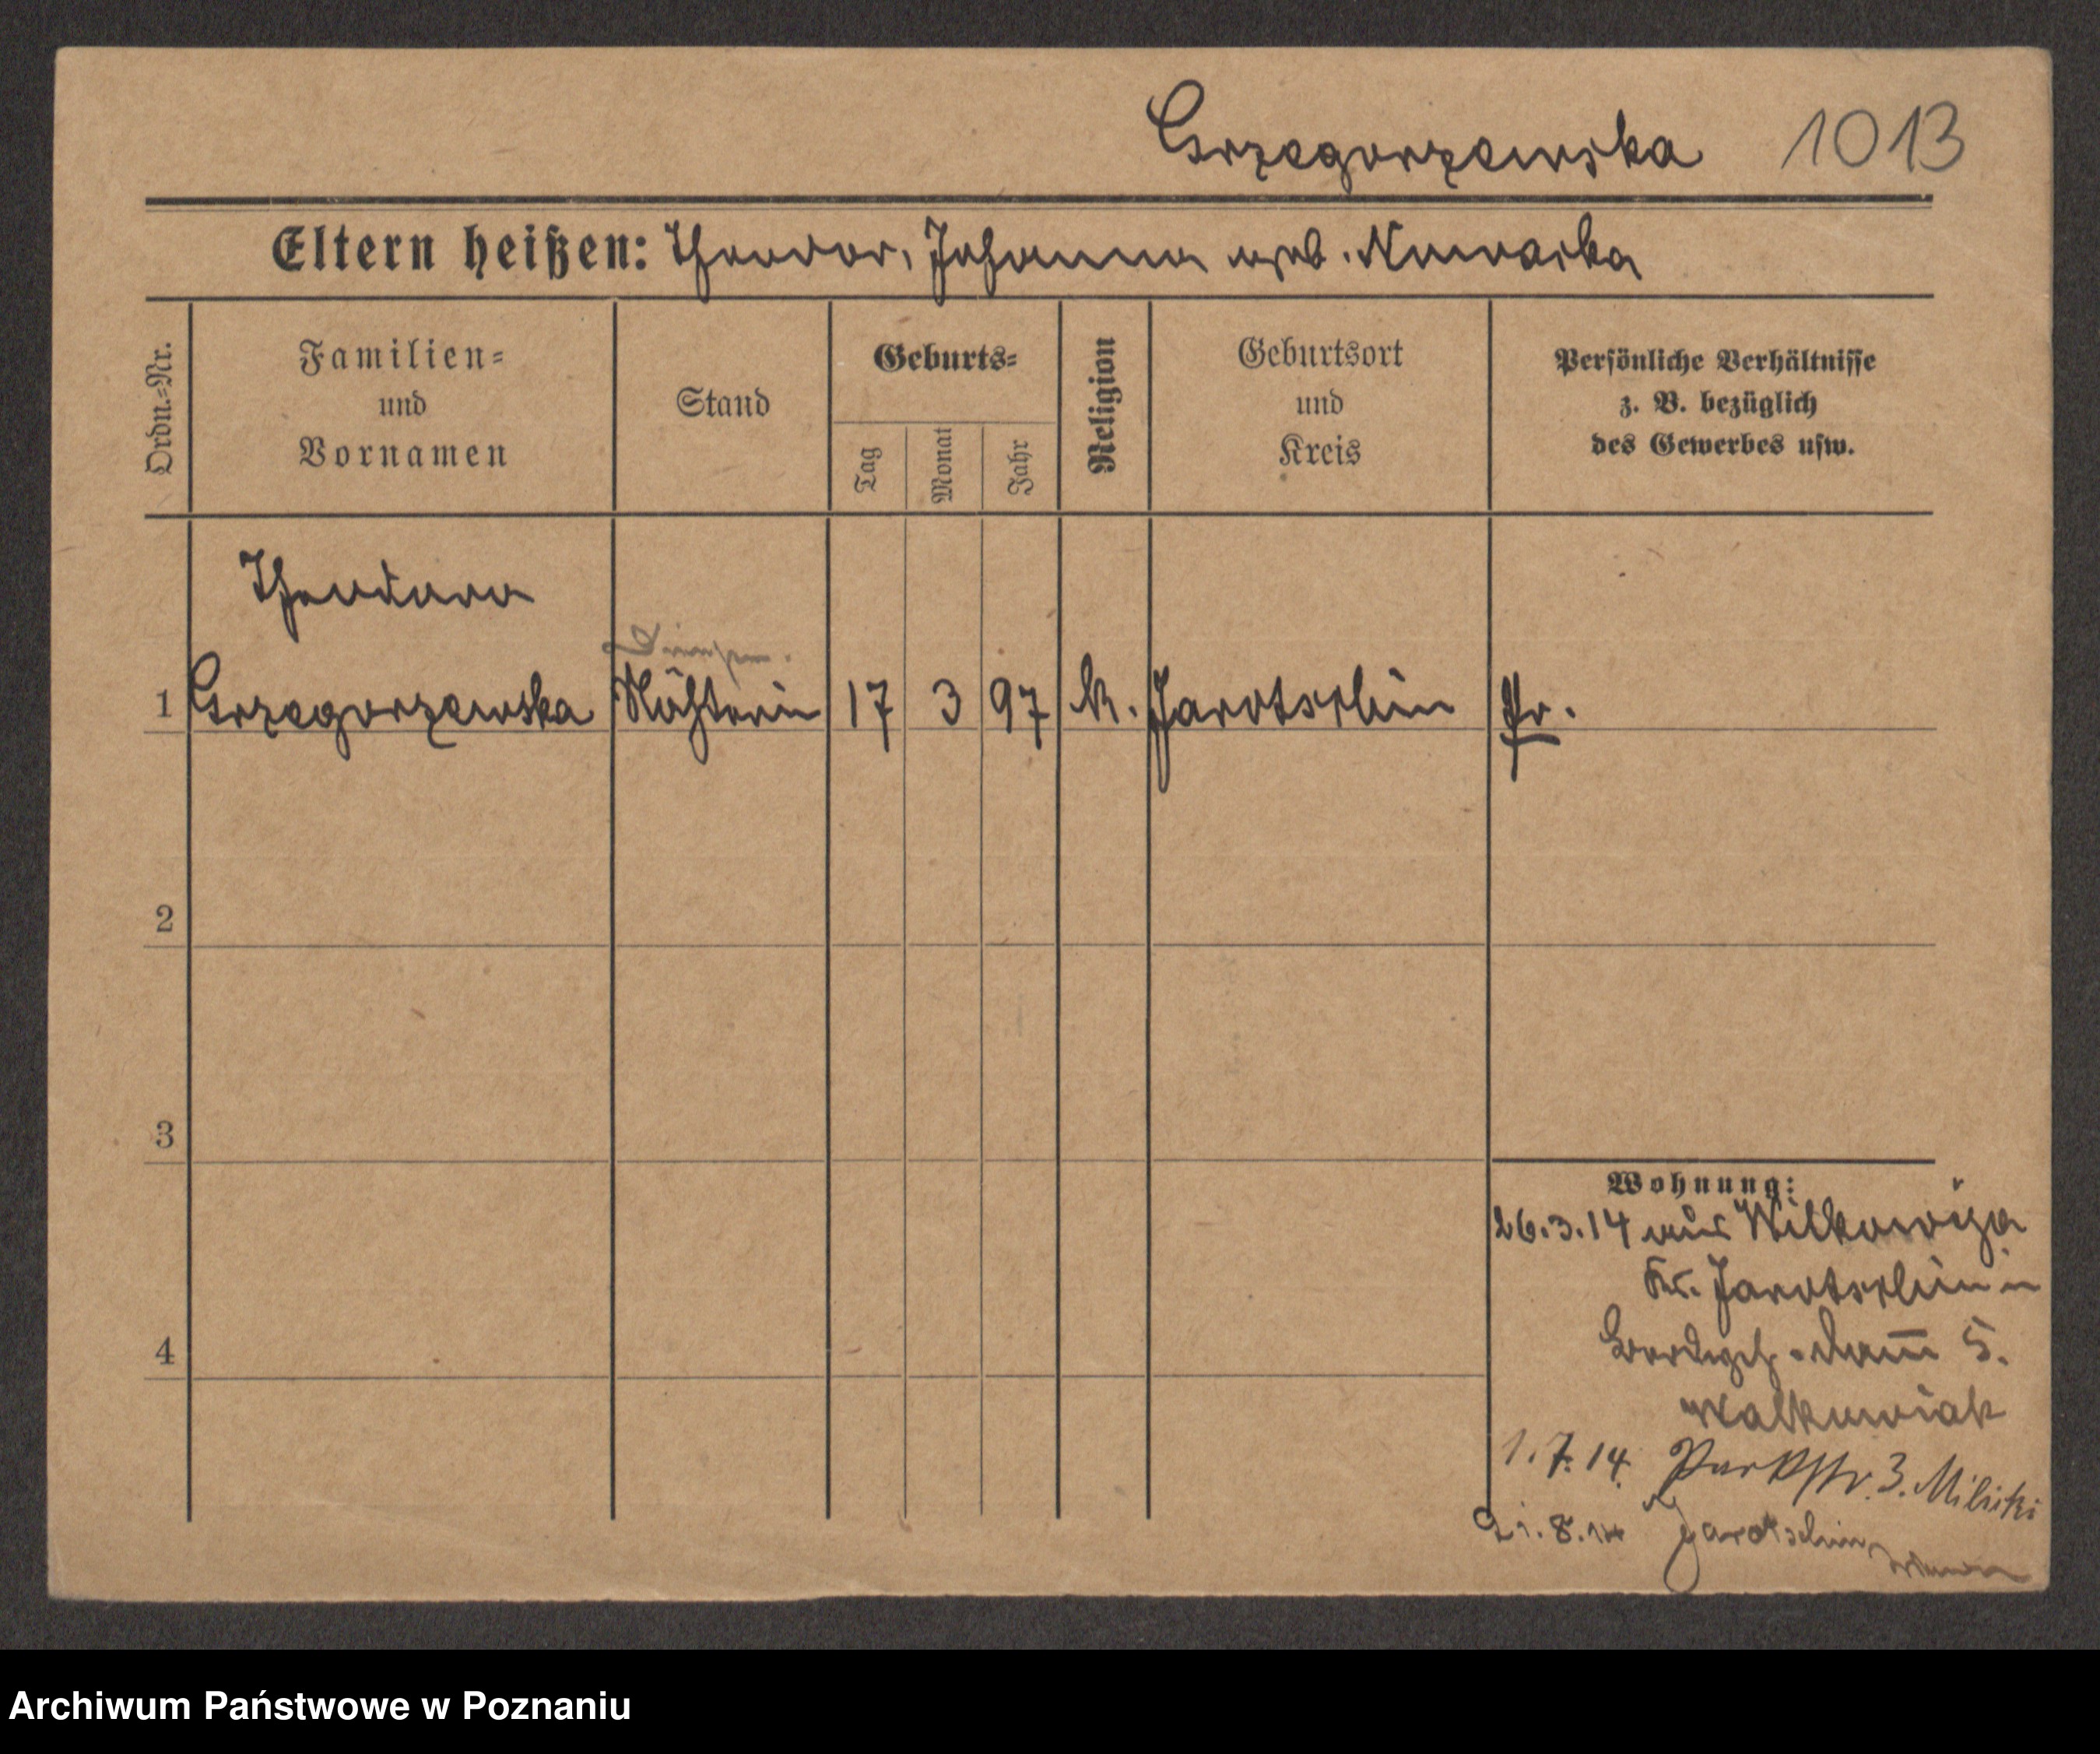 Grzegorzewska 1013
Eltern heißen: Theodor, Johanna geb. Nowacka
Ordn.-Nr.
Familien-
und
Vornamen
Stand
Geburts-
Tag
Monat
Jahr
Religion
Geburtsort
und
Kreis
Persönliche Verhältnisse
z. B. bezüglich
des Gewerbes usw.
Theodora
1 Grzegorzewska Nähterin 17 3 97 k. Jarotschin Pr.
2
3
4
Wohnung:
26.3.14 aus Wilkowyja
Kr. Jarotschin n
damm 5.
Walkowiak
1.7.14 Parkstr. 3. Miliski
21.8.14 Jarotschin
Archiwum Państwowe w Poznaniu